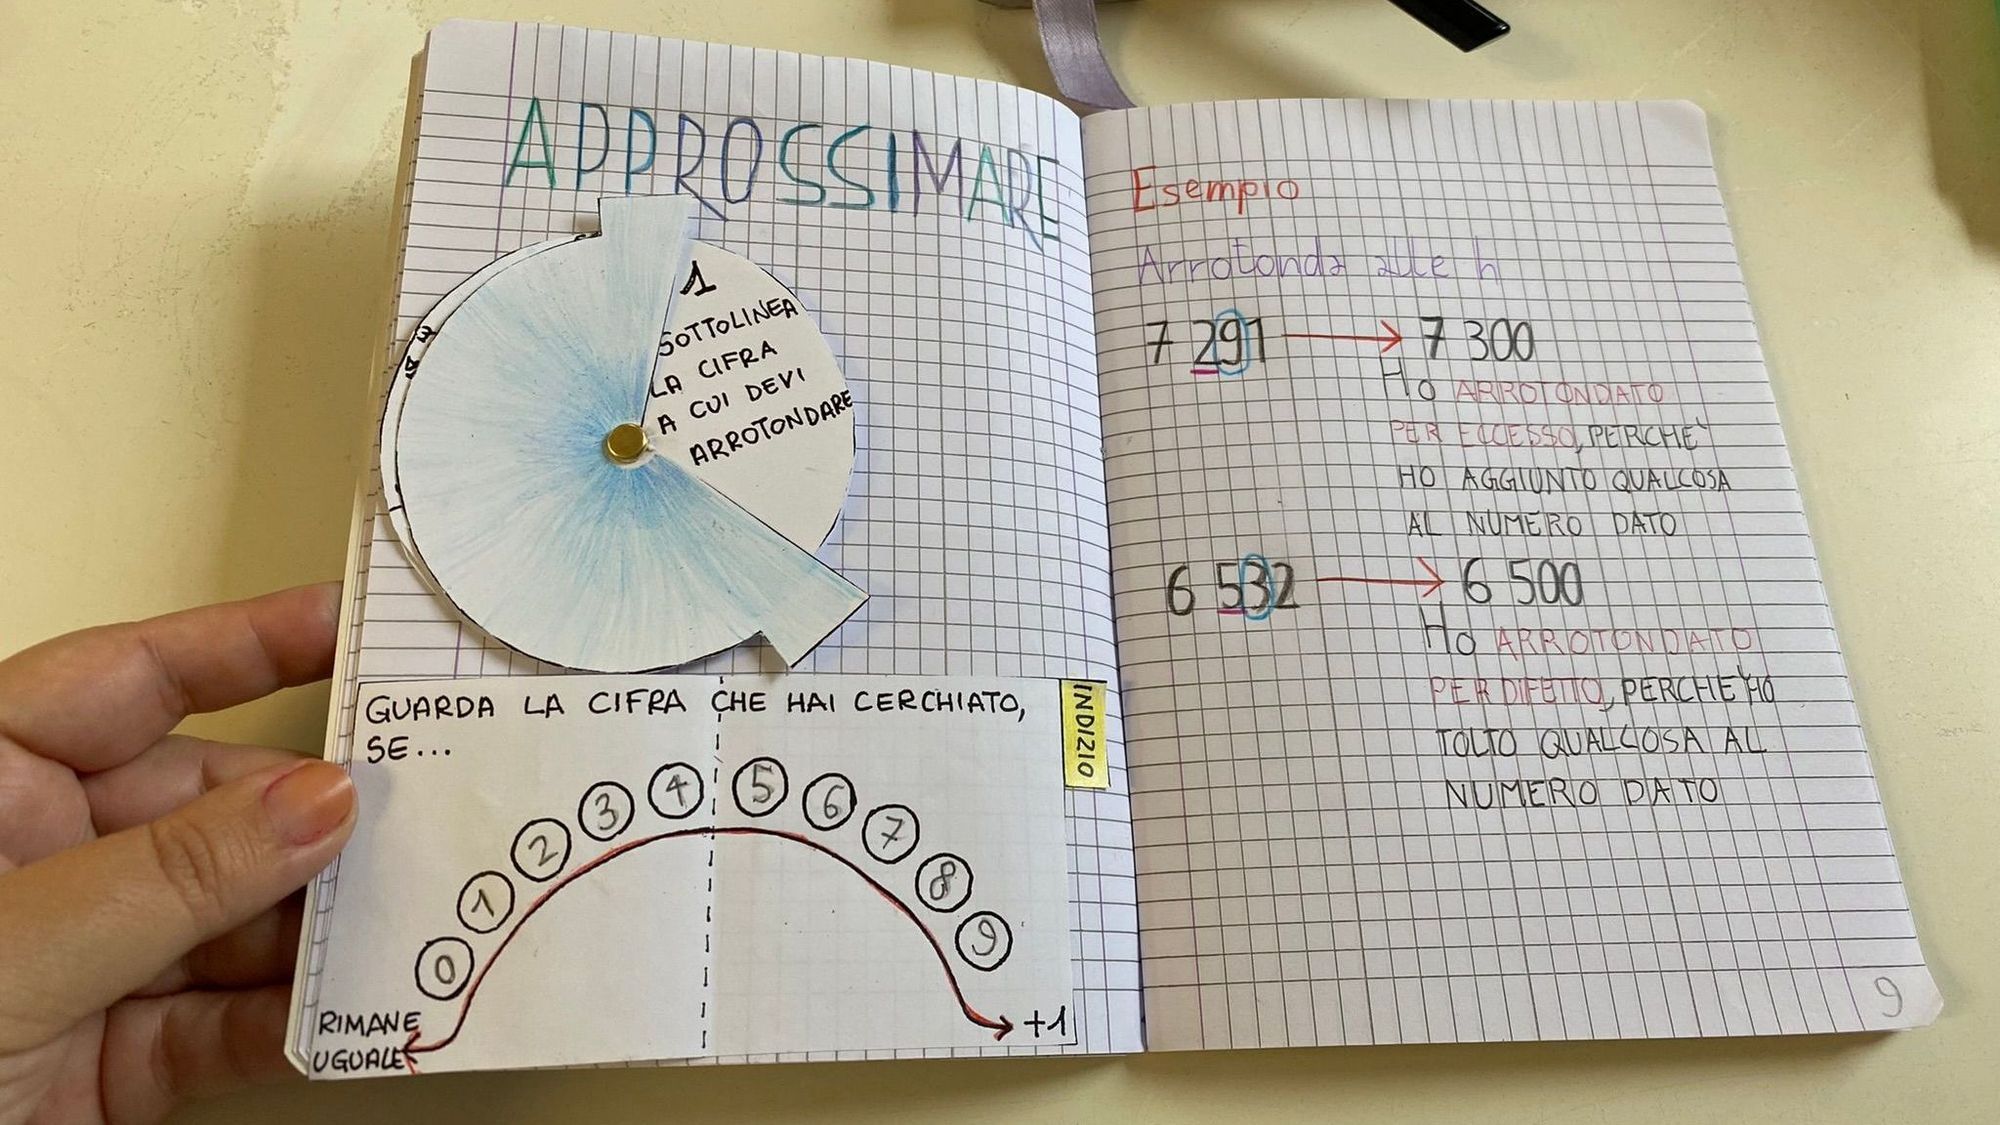 APPROSSIMARE
1
SOTTOLINEA
LA CIFRA
A CUI DEVI
ARROTONDARE
GUARDA LA CIFRA CHE HAI CERCHIATO,
SE...
INDIZIO
0 1 2 3 4 5 6 7 8 9
RIMANE
UGUALE
+1
Esempio
Arrotonda alle h
7 291 → 7 300
HO ARROTONDATO
PER ECCESSO, PERCHE'
HO AGGIUNTO QUALCOSA
AL NUMERO DATO
6 532 → 6 500
HO ARROTONDATO
PER DIFETTO, PERCHE' HO
TOLTO QUALCOSA AL
NUMERO DATO
9